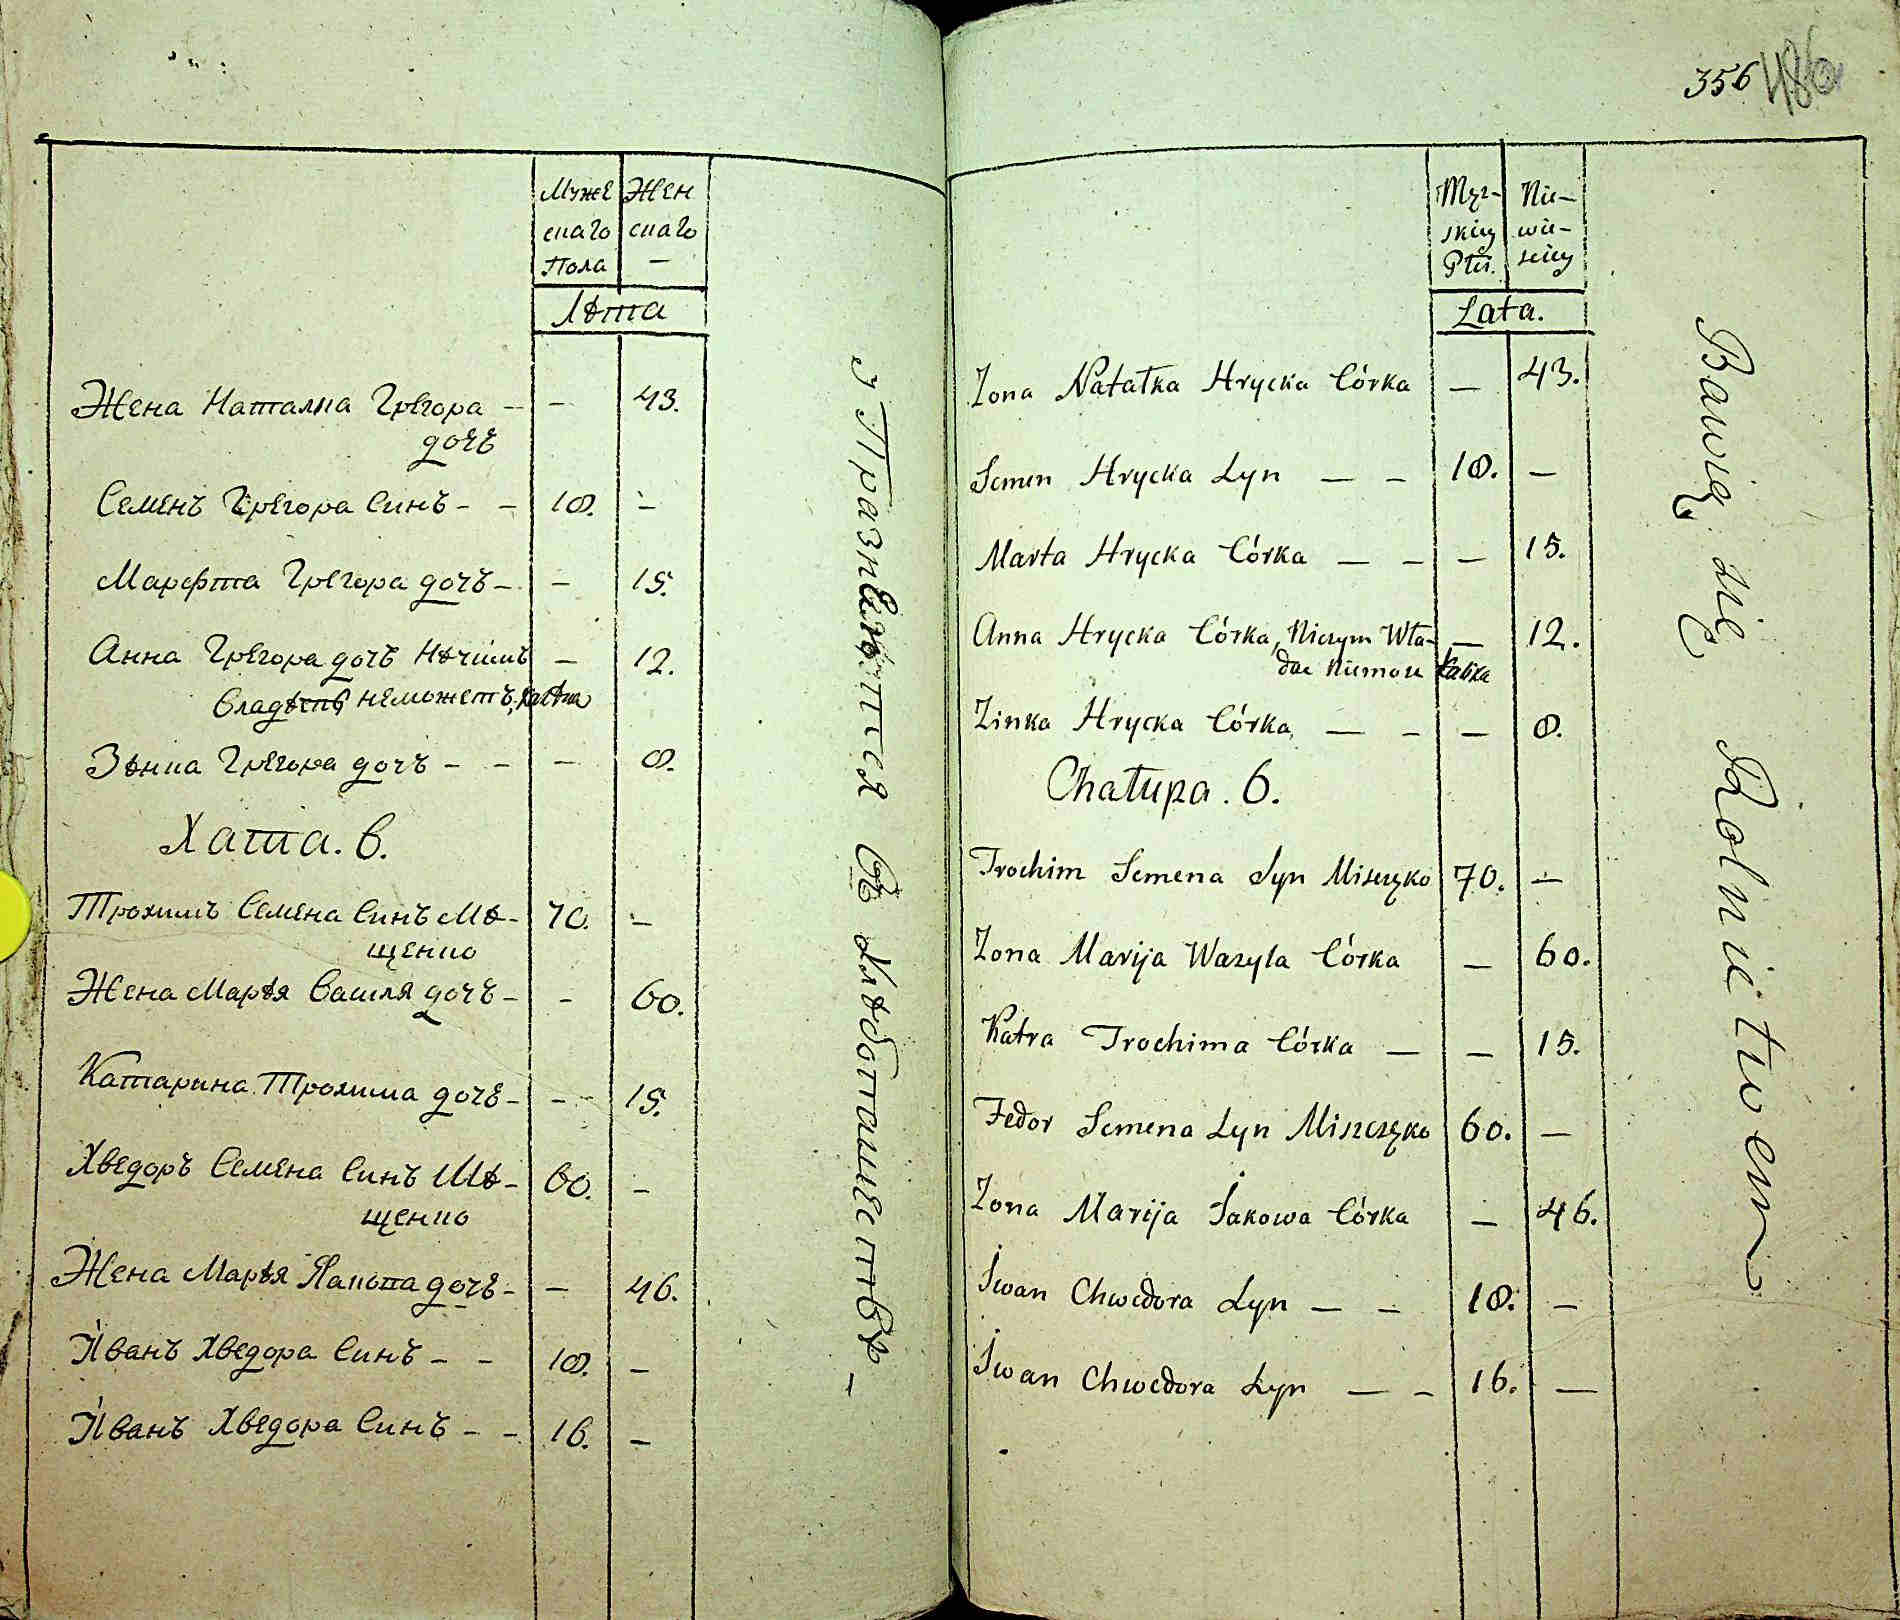 Муже Жен
скаго скаго
Пола —
Лѣта
Жена Наталка Грегора — — 43.
дочъ
Семенъ Грегора Синъ - - 18. —
Марфта Грегора дочъ - — 15.
Анна Грегора дочъ Нѣчимъ — 12.
Владѣть неможетъ, калѣка
Зѣнка Грегора дочъ - - — 8.
Хата. 6.
Трохимъ Семена Синъ Мѣ- 70. —
щенко
Жена Марѣя Василя дочъ - - 60.
Катарина Трохима дочъ - - 15.
Хведоръ Семена Синъ Мѣ- 60. —
щенко
Жена Марѣя Якова дочъ - — 46.
Иванъ Хведора Синъ - - 18. —
Иванъ Хведора Синъ - - 16. —
въ хлѣбопашествѣ —
356 486
Męz- Nie-
skiey wie-
Płci. sciey
Lata.
Zona Natałka Hrycka Córka — 43.
Semen Hrycka Syn — - 18. —
Marta Hrycka Córka — - — 15.
Anna Hrycka Córka, Niczym Wła- — 12.
dac Niemoze Kalika
Zinka Hrycka Córka — - — 8.
Chałupa. 6.
Trochim Semena Syn Miszczęko 70. —
Zona Marija Wazyla Córka — 60.
Katra Trochima Córka — — 15.
Fedor Semena Syn Miszczęko 60. —
Zona Marija Jakowa Córka — 46.
Iwan Chwedora Syn — - 18. —
Iwan Chwedora Syn — - 16. —
Bawią się Rolnictwem